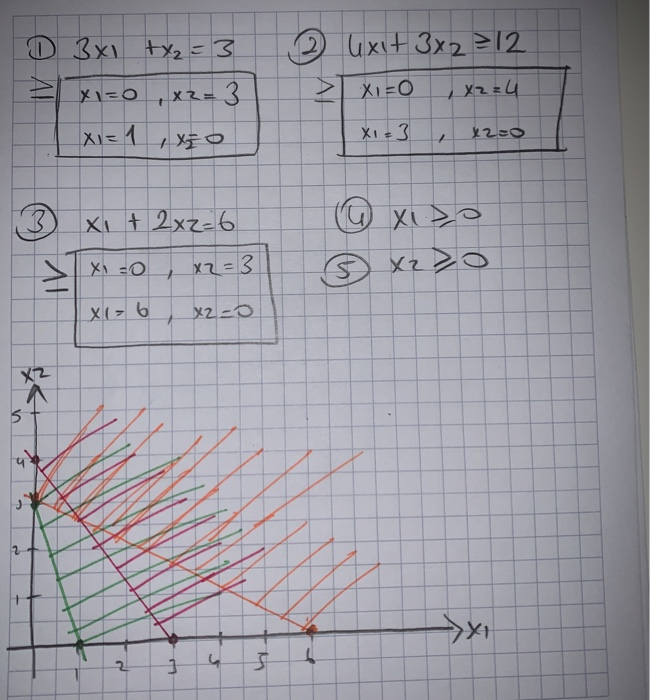 ① 3x1 + x2 = 3
≥ x1=0 , x2=3
x1=1 , x2=0
② 4x1 + 3x2 ≥ 12
≥ x1=0 , x2=4
x1=3 , x2=0
③ x1 + 2x2=6
≥ x1=0 , x2=3
x1=6 , x2=0
④ x1 ≥ 0
⑤ x2 ≥ 0
x2
5
4
3
2
1
1 2 3 4 5 6
x1